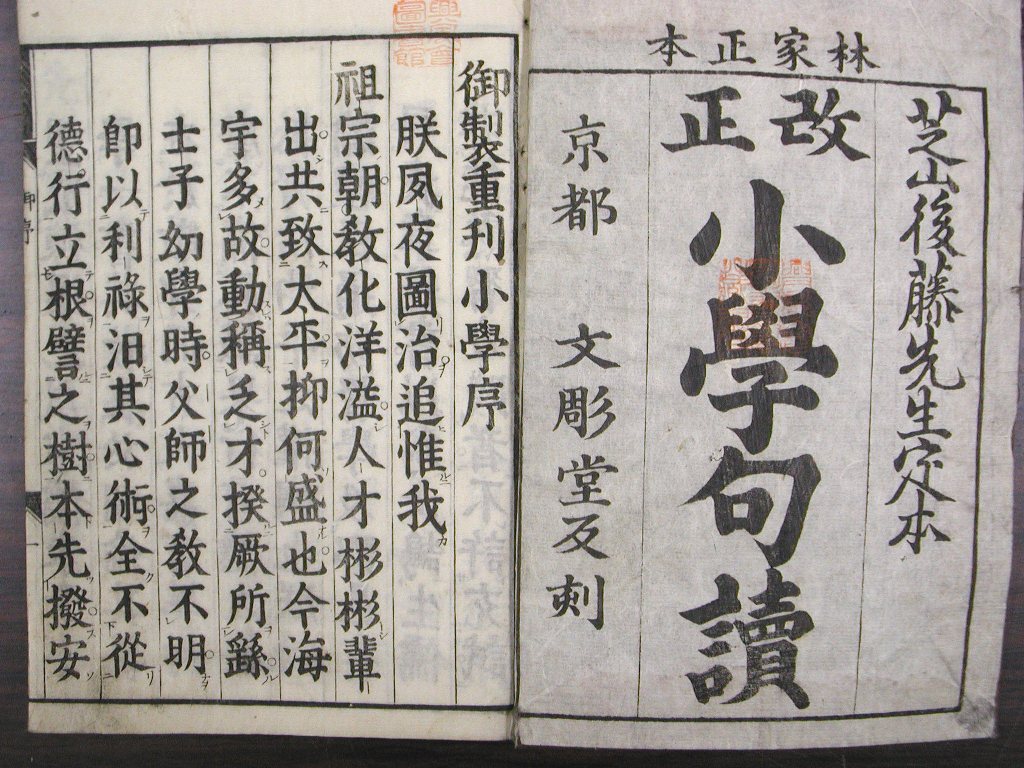 林家正本
芝山後藤先生定本
改正
小學句讀
京都 文彫堂反刻
御製重刊小學序
朕夙夜圖治追惟我
祖宗朝教化洋溢人才彬彬輩
出共致太平抑何盛也今海
宇多故動稱乏才揆厥所繇
士子幼學時父師之教不明
卽以利祿汨其心術全不從
德行立根譬之樹本先撥安
御序